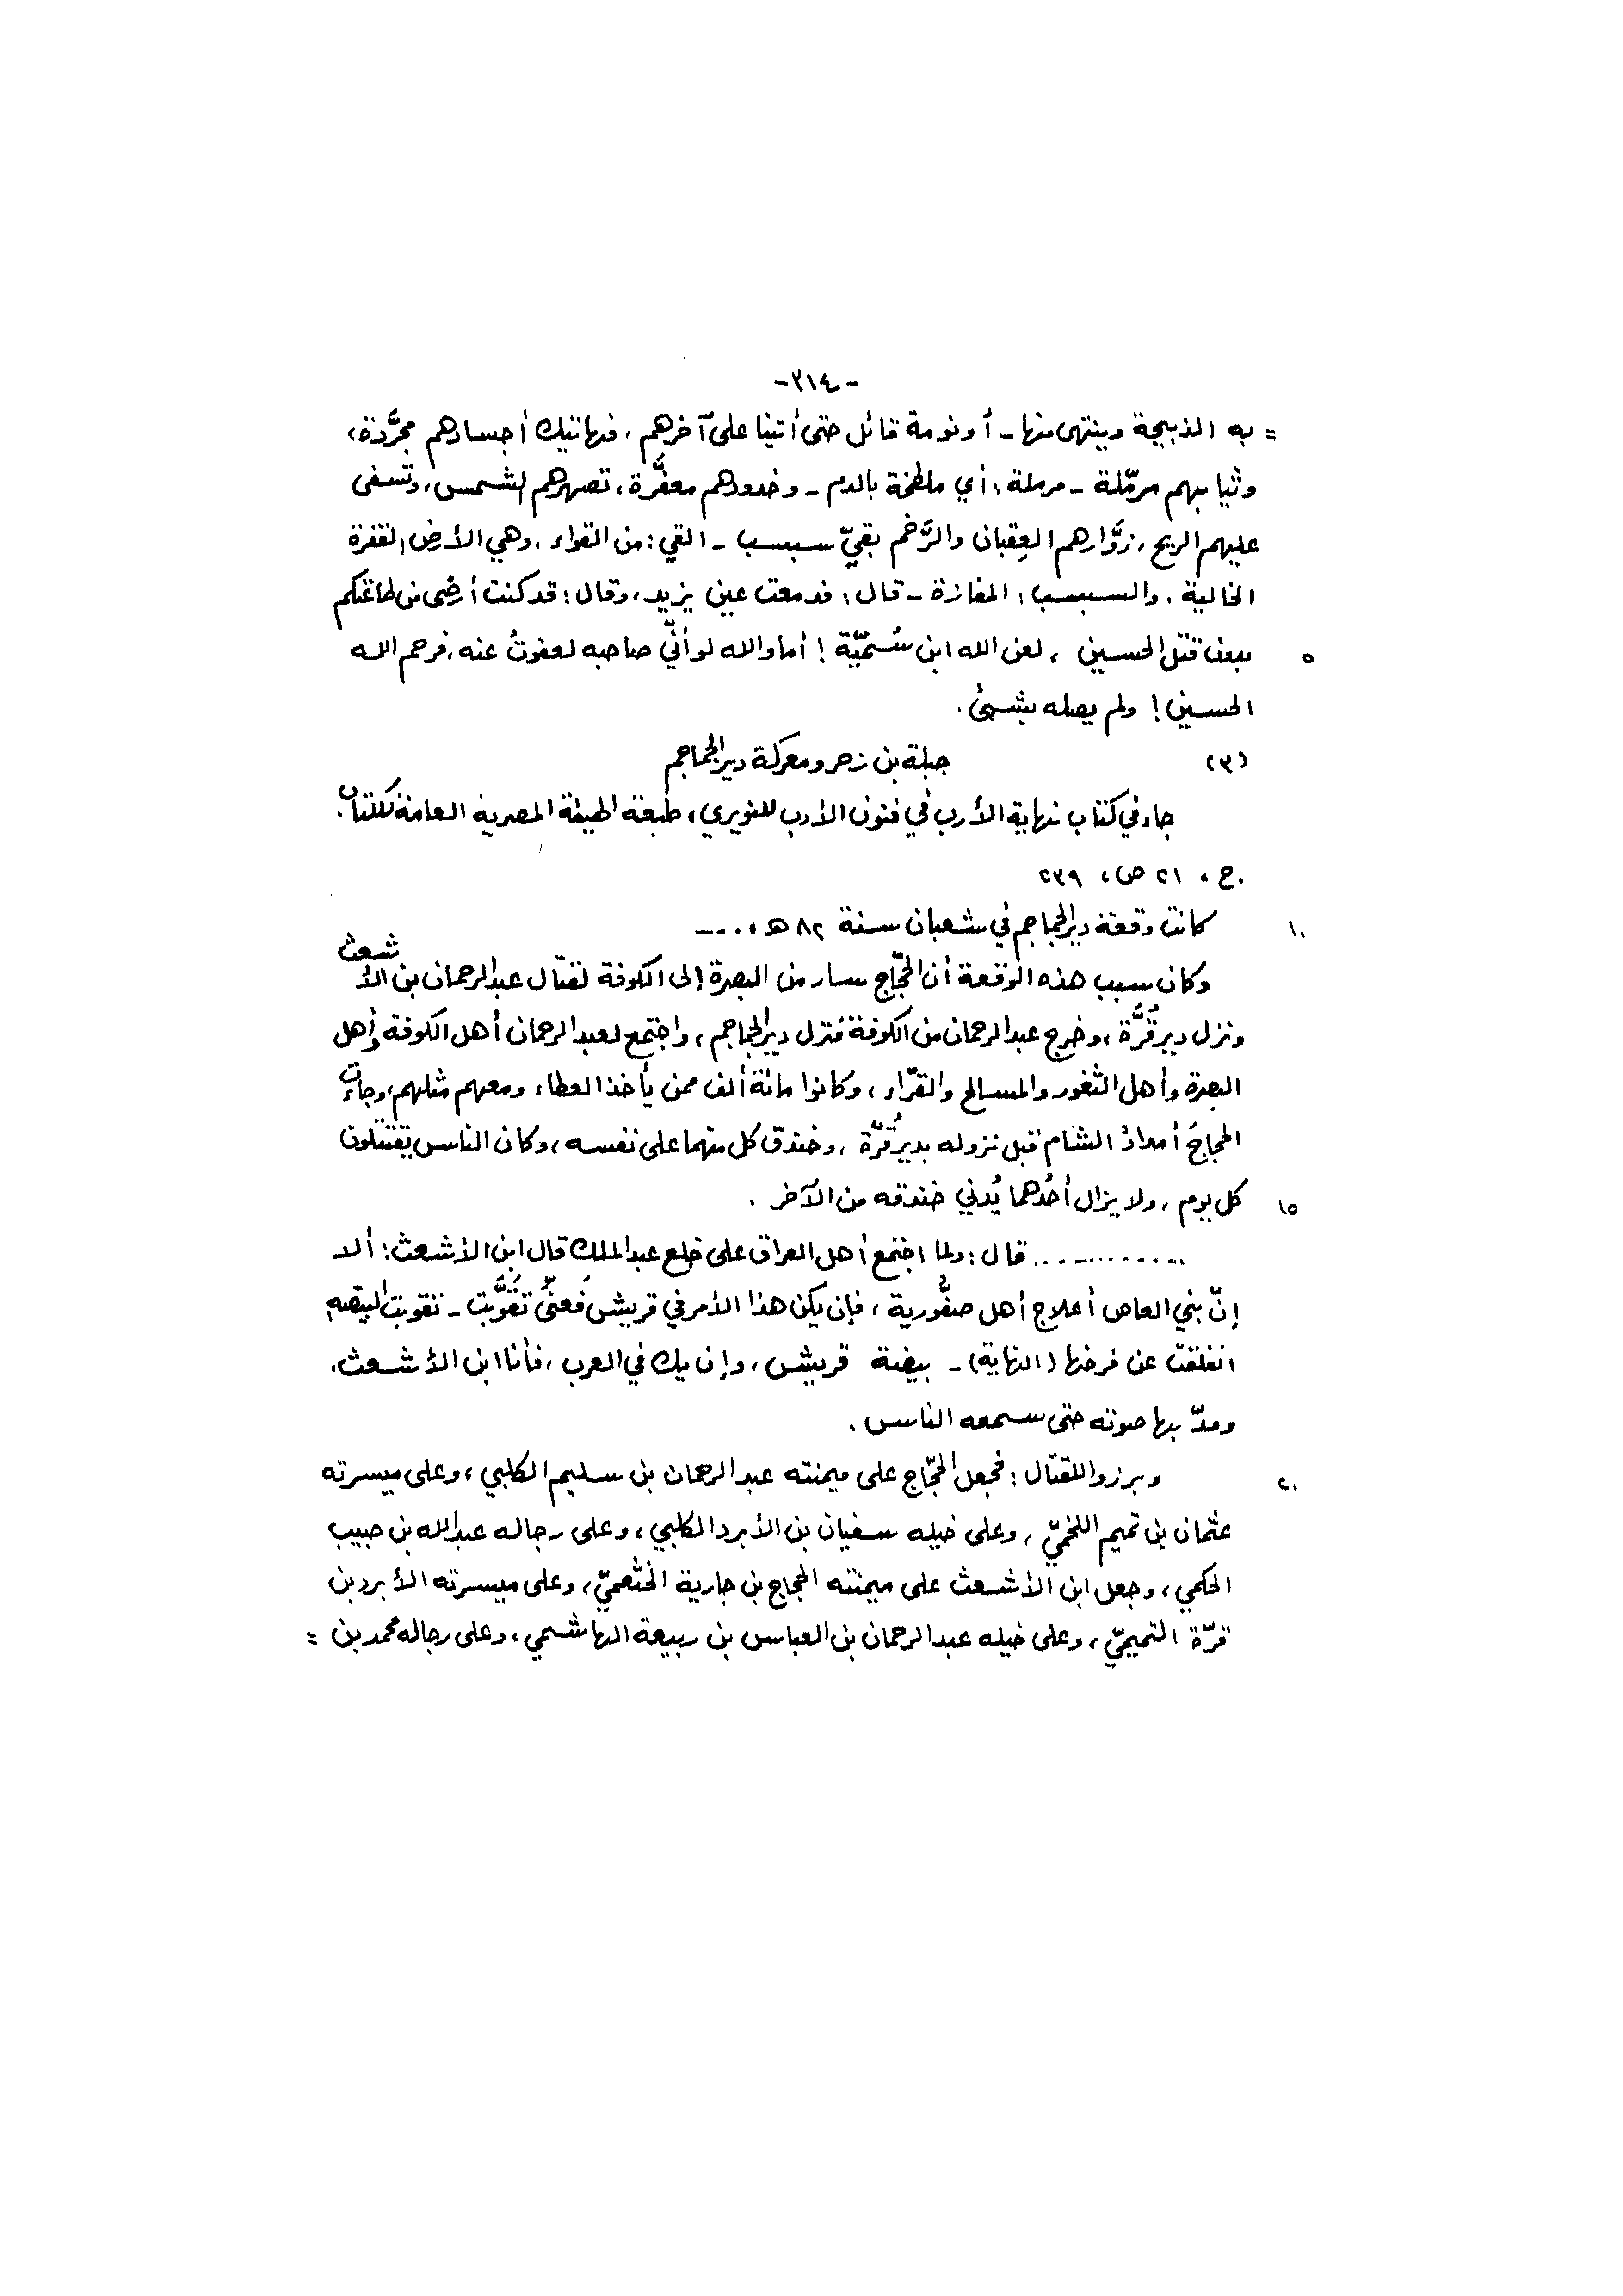 -٣١٤-
= به الذبيجة وينتهي منها - أو نومة قائل حتى أتينا على آخرهم، فهاتيك أجسادهم مجرَّدة،
وثيابهم مرمّلة - مرملة: أي ملطخة بالدم - وخدودهم معفَّرة، تصهرهم الشمس، وتسفى
عليهم الريح، زوَّارهم العِقبان والرَّخم بقيّ سبسب - القي: من القواء، وهي الأرض القفرة
الخالية، والسبسب: المفازة - قال: فدمعت عين يزيد، وقال: قد كنت أرضى من طاعتكم
٥ بدون قتل الحسين، لعن الله ابن سُميّة! أما والله لو أنّي صاحبه لعفوتُ عنه، فرحم الله
الحسين! ولم يصله بشيئ.
(٣) جبلة بن زحر ومعركة دير الجماجم
جاء في كتاب نهاية الأرب في فنون الأدب للنويري، طبعة الهيئة المصرية العامة للكتاب.
ج، ٢١ ص، ٢٣٩
١٠ كانت وقعة دير الجماجم في شعبان سنة ٨٢ هـ، ....
وكان سبب هذه الوقعة أن الحجّاج سار من البصرة إلى الكوفة لقتال عبد الرحمان بن الأشعث
ونزل دير قُرَّة، وخرج عبد الرحمان من الكوفة فنزل دير الجماجم، واجتمع لعبد الرحمان أهل الكوفة وأهل
البصرة وأهل الثغور والمسالح والقرّاء، وكانوا مائة ألف ممن يأخذ العطاء ومعهم مثلهم، وجاءت
الحجاجَ أمدادُ الشام قبل نزوله بدير قُرّة، وخندق كل منهما على نفسه، وكان الناس يقتتلون
١٥ كل يوم، ولا يزال أحدُهما يُدني خندقه من الآخر.
.............. قال: ولما اجتمع أهل العراق على خلع عبد الملك قال ابن الأشعث: ألا
إنّ بني العاص أعلاج أهل صفُّورية، فإن يكن هذا الأمر في قريش فَعنّي تَقَوَّبت - تقوبت البيضة
انفلقت عن فرخها (النهاية) - بيضة قريش، وإن يك في العرب، فأنا ابن الأشعث،
ومدّ بها صوته حتى سمعه الناس.
٢٠ وبرزوا للقتال: فجعل الحجّاج على ميمنته عبد الرحمان بن سليم الكلبي، وعلى ميسرته
عثمان بن تميم اللخميّ، وعلى خيله سفيان بن الأبرد الكلبي، وعلى رجاله عبد الله بن حبيب
الحكمي، وجعل ابن الأشعث على ميمنته الحجاج بن جارية الخثعميّ، وعلى ميسرته الأبرد بن
قرّة التميميّ، وعلى خيله عبد الرحمان بن العباس بن ربيعة الهاشمي، وعلى رجاله محمد بن =